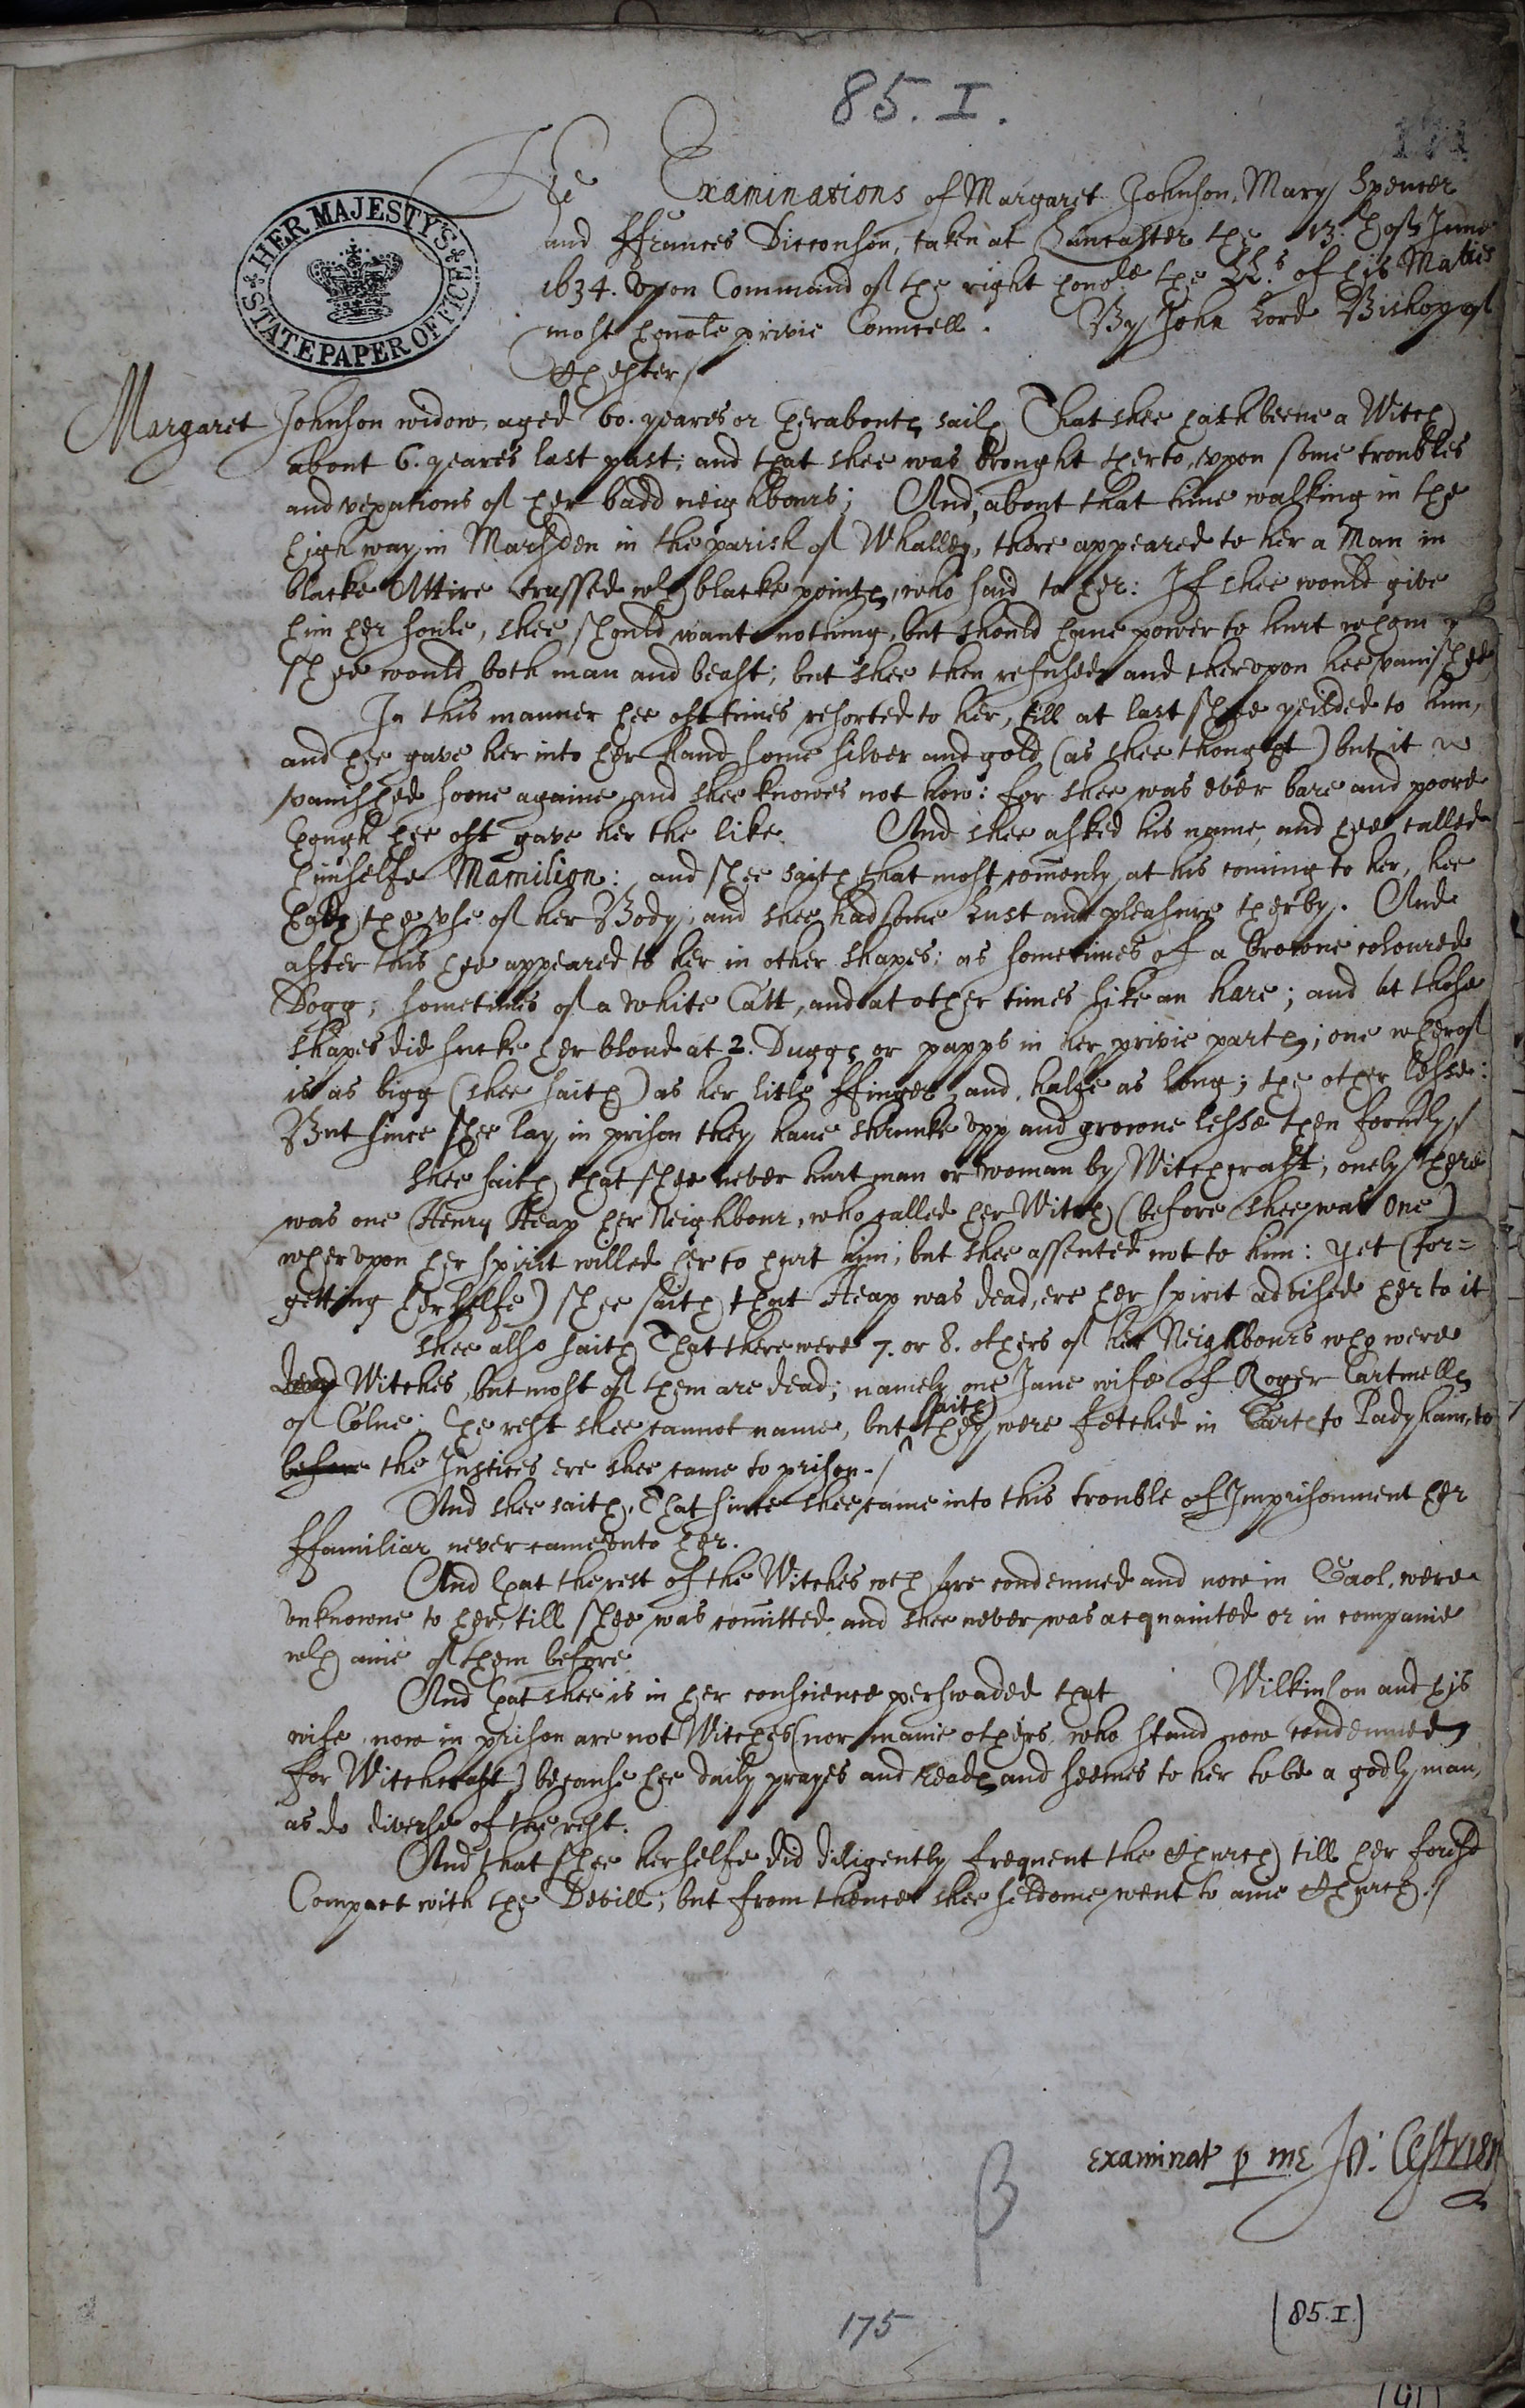 85. I.
171
The Examinations of Margaret Johnson, Mary Spencer
and ffrances Dicconson, taken at Lancaster the 13.th of June
1634. Vpon Command of the right honoble the LL.s of his Maties
most honoble privie Councell. By John Lord Bishop of
Chester /
HER MAJESTY'S STATE PAPER OFFICE
Margaret Johnson widow, aged 60. yeares or therabouts, saith That shee hath beene a Witch
about 6. yeares last past; and that shee was brought therto, vpon some troubles
and vexations of her badd neighbours; And, about that time walking in the
high way in Marsden in the parish of Whalley, there appeared to her a Man in
blacke Attire trussed wth blacke points, who said to her: If shee would give
him her soule, shee should want nothing, but should haue power to hurt whom
shee would both man and beast; but shee then refused and thervpon hee vanished
In this manner hee oft times resorted to her, till at last shee yeilded to him,
and hee gave her into her hand some silver and gold (as shee thought) but it
vanished soone againe and shee knowes not how: for shee was ever bare and poore
though hee oft gave her the like. And shee asked his name, and hee called
himselfe Mamilion: and shee saith that most comonly at his coming to her, hee
hath the vse of her Body, and shee had some Lust and pleasure therby. And
after this hee appeared to her in other shapes; as sometimes of a browne coloured
Dogg; sometimes of a white Catt, and at other times like an hare; and in those
shapes did sucke her bloud at 2. Duggs or papps in her privie parts; one wherof
is as bigg (shee saith) as her litle ffinger, and halfe as long; the other lesse:
But since shee lay in prison they haue shrunke vpp and growne lesse then formerly /
Shee saith that shee never hurt man or woman by Witchcraft; onely there
was one Henry Heap her Neighbour, who called her Witch (before shee was one)
whervpon her spirit willed her to hurt him; but shee assented not to him: yet (for=
getting herselfe) shee saith that Heap was dead, ere her spirit advised her to it
Shee also saith That there were 7. or 8. others of her Neighbours who were
Witches, but most of them are dead; namely one Jane wife of Roger Cartmell
of Colne; The rest shee cannot name, but saith they were fetched in Carts to Padyham, to
before the Justices ere shee came to prison. /
And shee saith, That since shee came into this trouble of Imprisonment her
ffamiliar never came vnto her.
And that the rest of the Witches wch are condemned and now in Gaol, were
vnknowne to her, till shee was comitted, and shee never was acquainted or in companie
wth anie of them before
And that shee is in her conscience perswaded that Wilkinson and his
wife, now in prison are not Witches (nor manie others, who stand now condemned
for Witchcraft) because hee daily prayes and reads and seemes to her to be a godly man,
as do diverse of the rest.
And that shee herselfe did diligently frequent the Church till her forsd
Compact with the Devill; but from thence shee seldome went to anie Church. /
Examinat p me Jo: Cestrien
175
(85. I.)